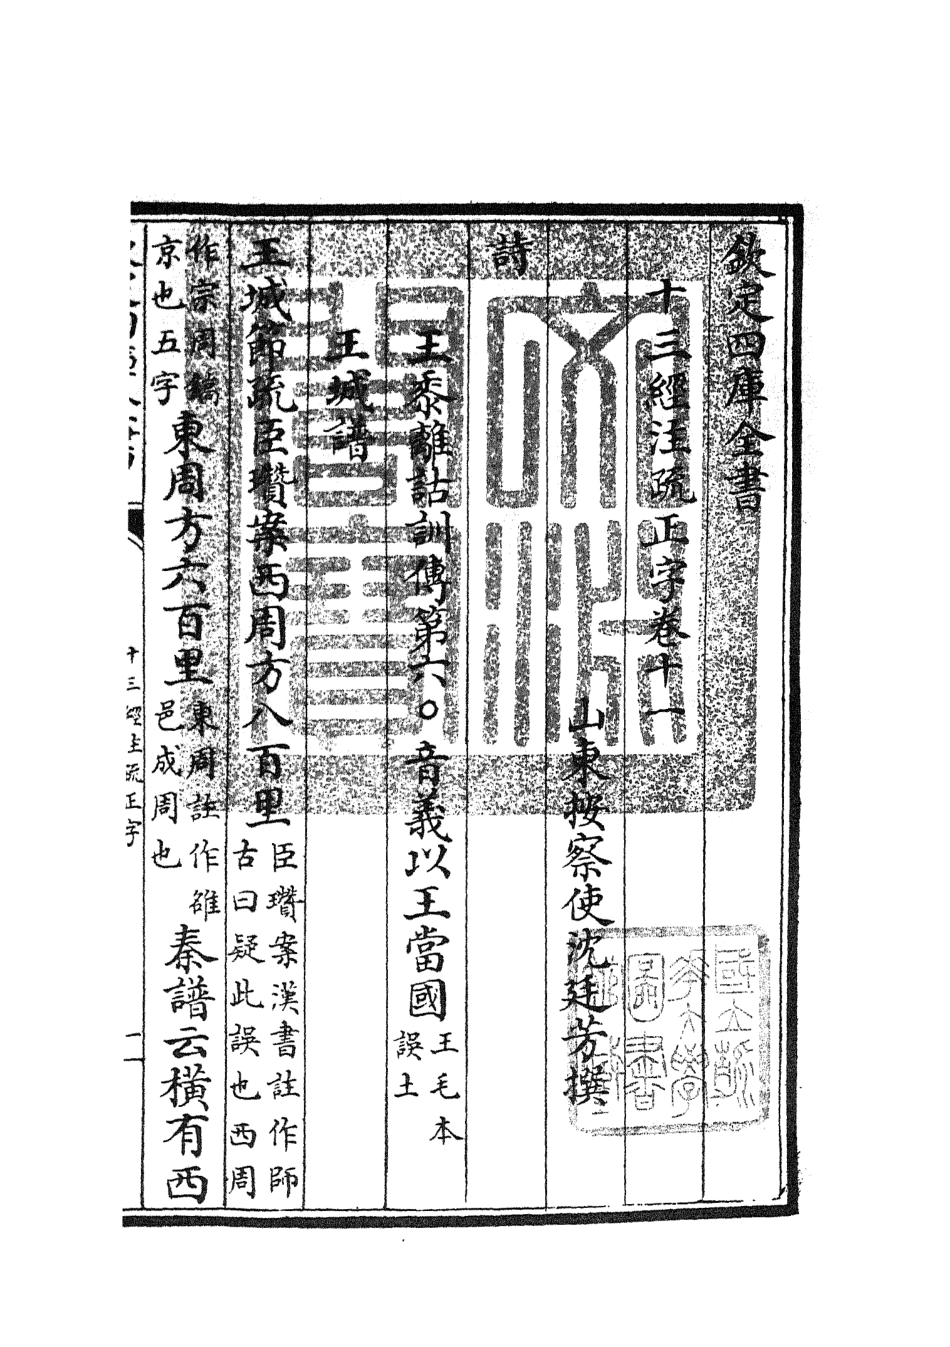 欽定四庫全書
十三經注疏正字卷十一
山東按察使沈廷芳撰
詩
王黍離詁訓傳第六○音義以王當國王毛本誤土
王城譜
王城節疏臣瓚案西周方八百里臣瓚案漢書註作師古曰疑此誤也西周
作宗周鎬京也五字東周方六百里東周註作雒邑成周也秦譜云橫有西
十三經注疏正字
一
文淵閣寶
國立新華大學圖書